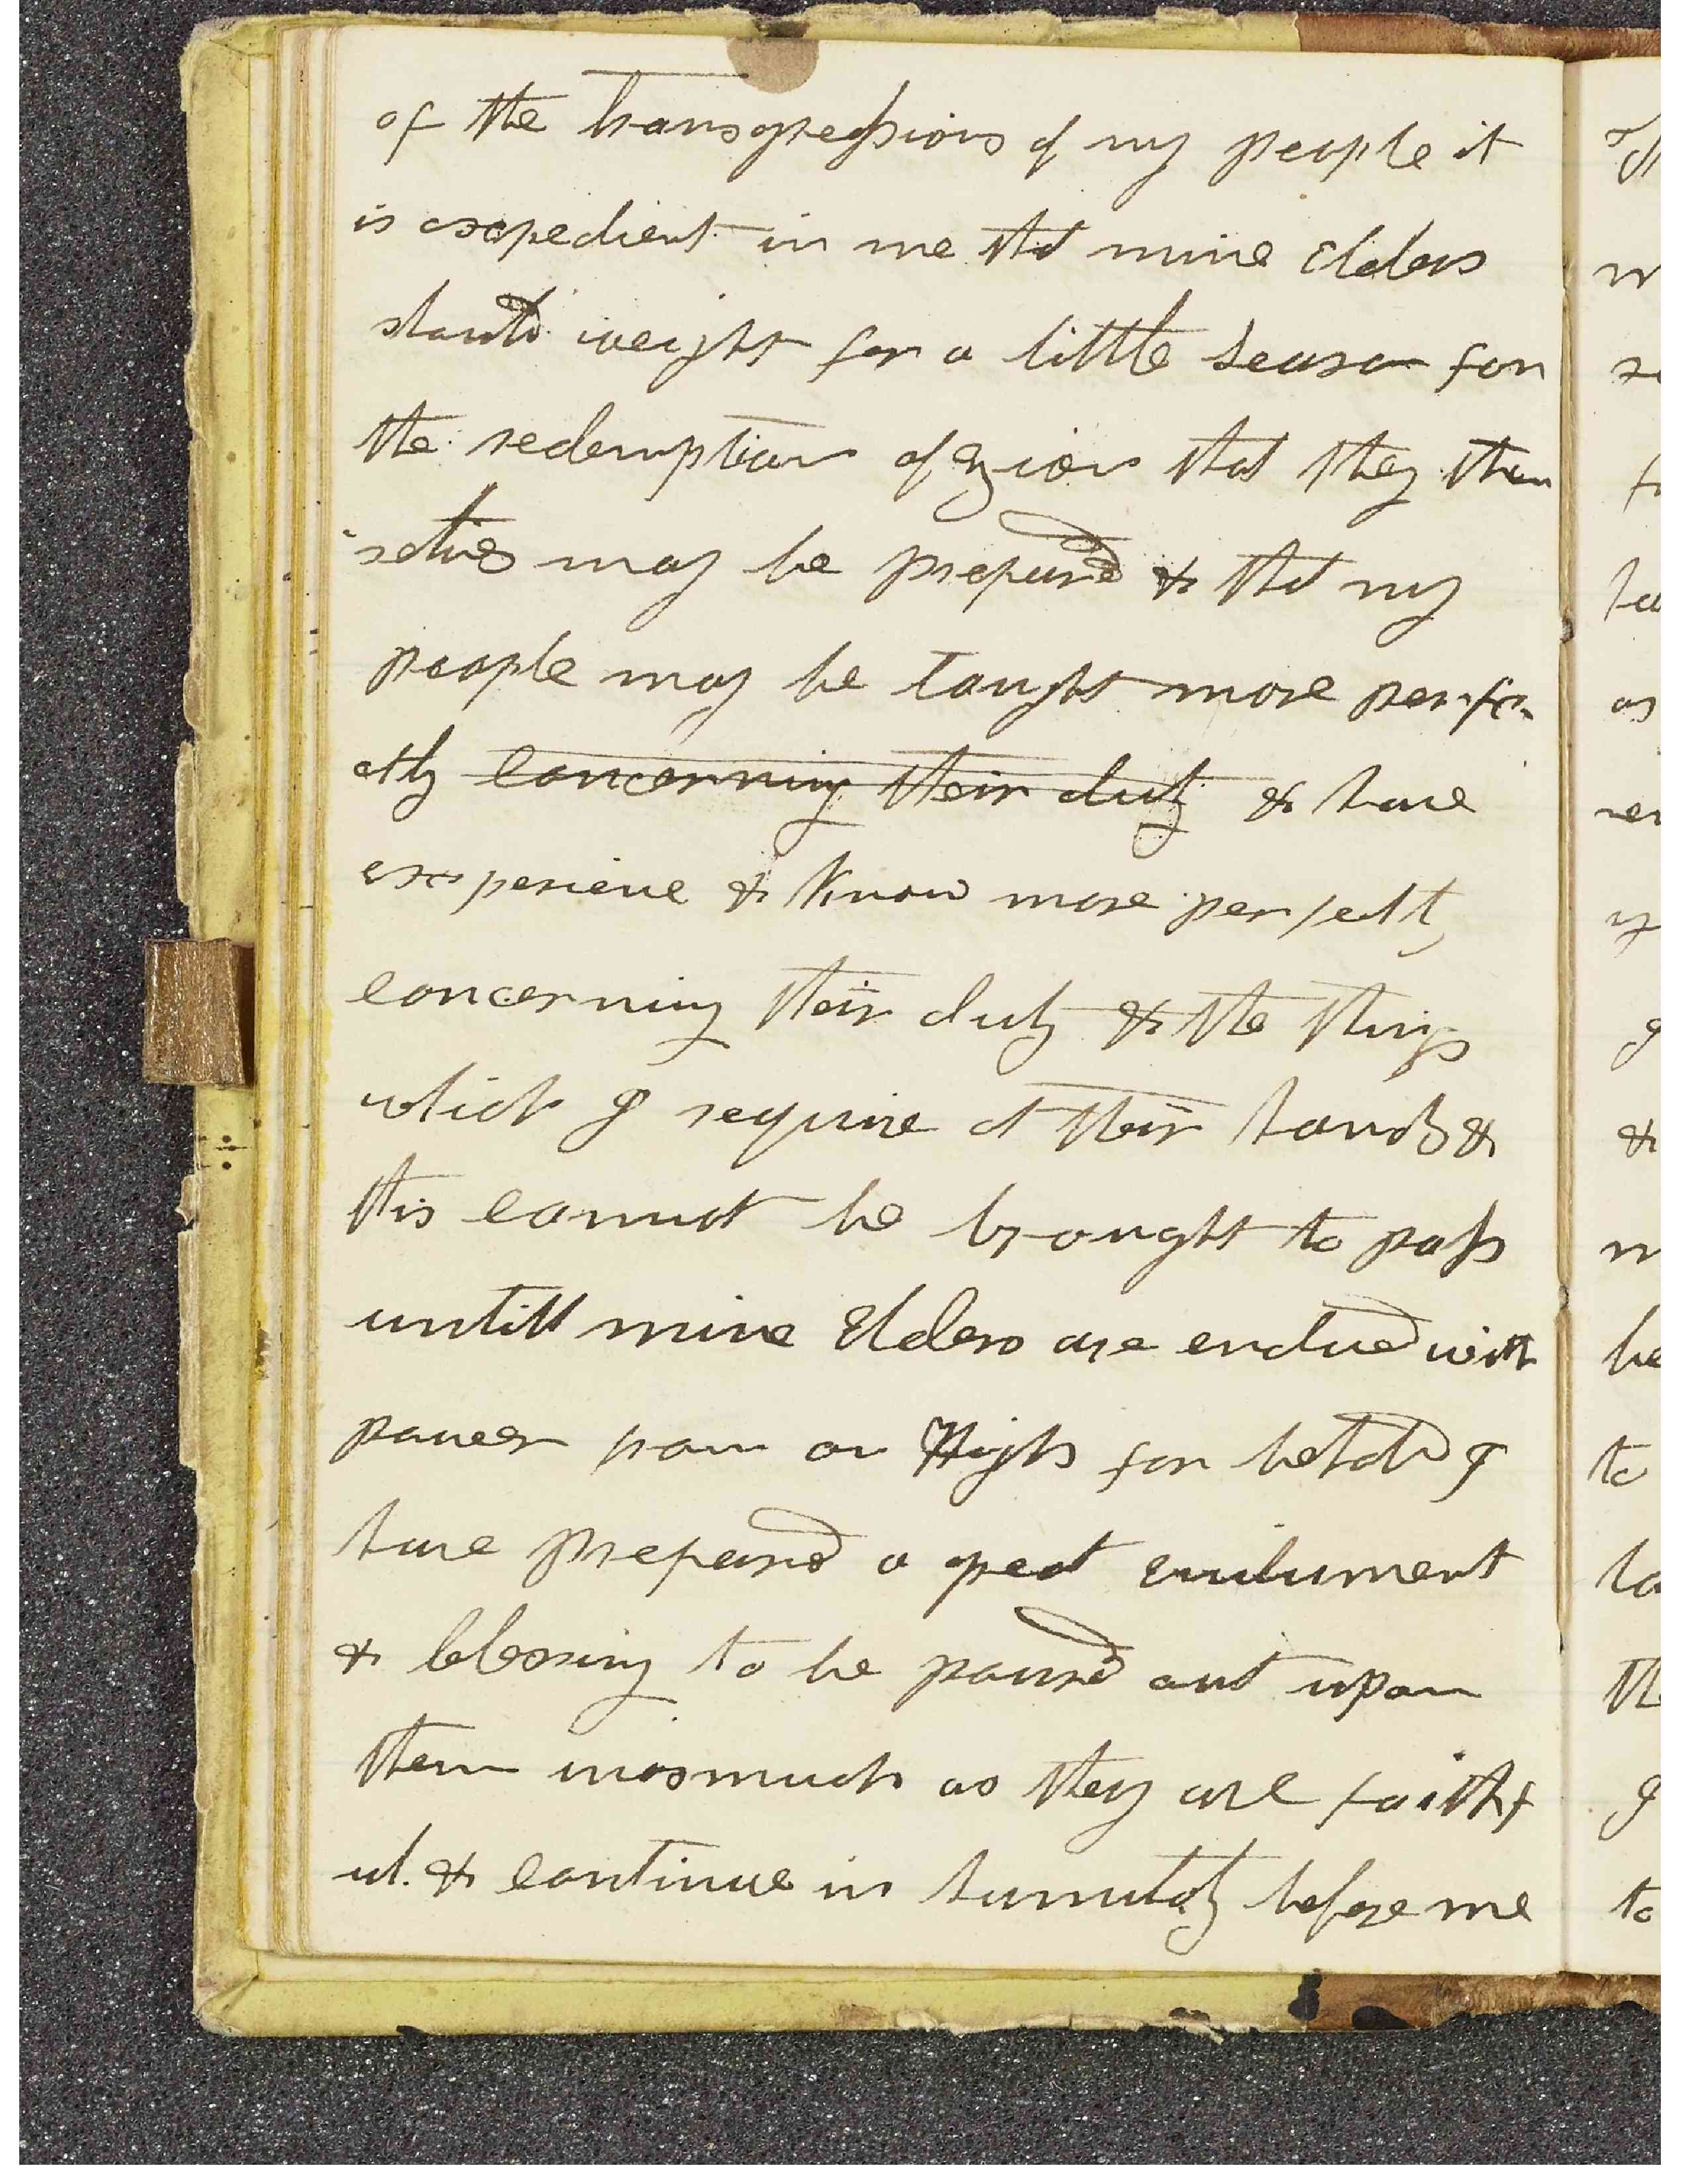 of the transgressions of my people it
is expedient in me that mine Elders
should weight for a little season for
the redemption of Zion that they them
selves may be prepared & that my
people may be taught more perfe
ctly concerning their duty & have
experience & know more perfectly
concerning their duty & the things
which I require at their hands &
this cannot be brought to pass
untill mine Elders are endued with
power from on High for behold I
have prepared a great enduement
& blessing to be poured out upon
them inasmuch as they are faithf
ul. & continue in humility before me